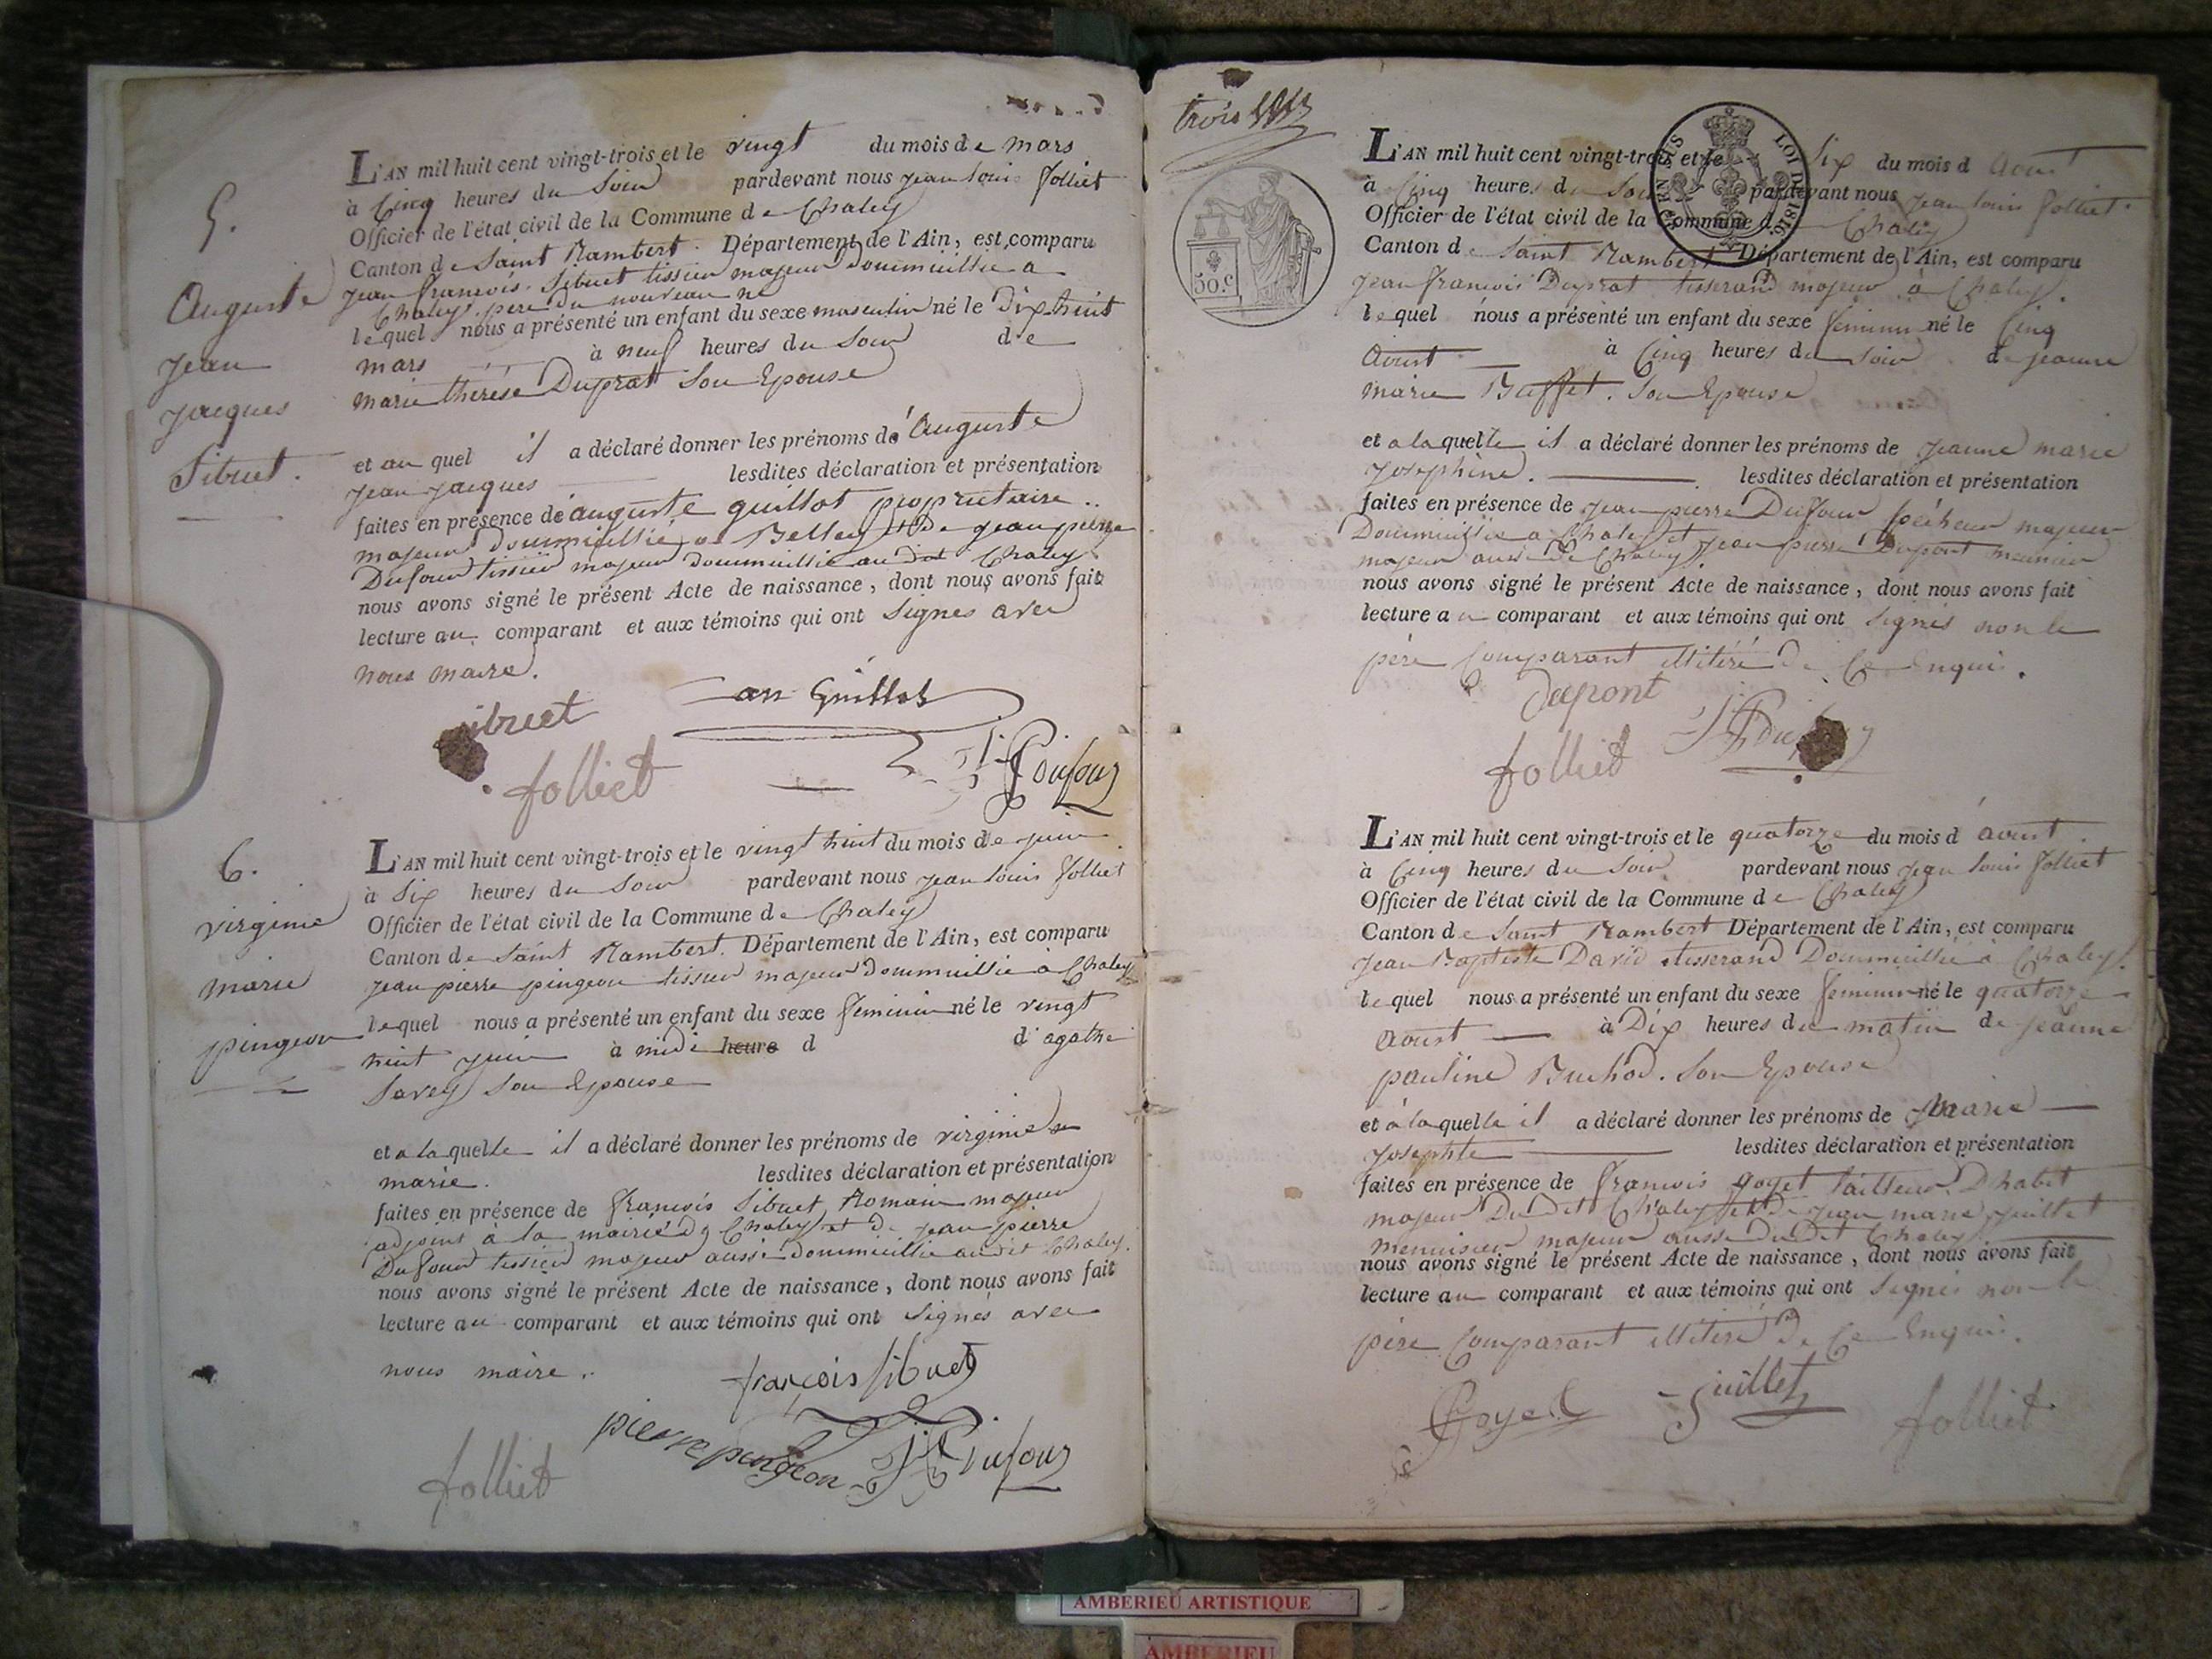 5.
Auguste
Jean
Jacques
Sibuet.
L'AN mil huit cent vingt-trois et le vingt du mois de mars
à Cinq heures du Soir pardevant nous jean louis folliet
Officier de l'état civil de la Commune de Chaley
Canton de Saint Rambert. Département de l'Ain, est comparu
jean francois Sibuet tissier majeur Doumicillié a
Chaley, père du nouveau né
lequel nous a présenté un enfant du sexe masculin né le Dix huit
mars à neuf heures du Soir de
marie thérèse Duprat Son Epouse
et au quel il a déclaré donner les prénoms de Auguste
jean jacques lesdites déclaration et présentation
faites en présence de auguste guillot propriétaire
majeur Doumicillié a Belley et De jean pierre
Dufour tissier majeur doumicillié au dit Chaley
nous avons signé le présent Acte de naissance, dont nous avons fait
lecture au comparant et aux témoins qui ont Signés avec
nous maire.
Sibuet
an Guillot
folliet
JP Dufour
6.
virginie
marie
pingeon
L'AN mil huit cent vingt-trois et le vingt huit du mois de juin
à Six heures du Soir pardevant nous jean louis folliet
Officier de l'état civil de la Commune de Chaley
Canton de Saint Rambert. Département de l'Ain, est comparu
jean pierre pingeon tissier majeur Doumicillié à Chaley
lequel nous a présenté un enfant du sexe feminin né le vingt
huit juin à midi heure d d'agathe
Savey Son Epouse
et a la quelle il a déclaré donner les prénoms de virginie
marie. lesdites déclaration et présentation
faites en présence de francois Sibuet Romain majeur
adjoint à la mairie de Chaley et de jean pierre
Dufour tissier majeur aussi doumicillié au dit Chaley.
nous avons signé le présent Acte de naissance, dont nous avons fait
lecture au comparant et aux témoins qui ont Signés avec
nous maire.
françois sibuet
pierre pingeon
JP Dufour
folliet
trois
50.C
LOI DE 1816
L'AN mil huit cent vingt-trois et le Six du mois d Aout
à Cinq heures du Soir pardevant nous jean louis folliet
Officier de l'état civil de la Commune de Chaley
Canton de Saint Rambert Département de l'Ain, est comparu
jean francois Duprat tisserand majeur à Chaley.
lequel nous a présenté un enfant du sexe feminin né le Cinq
Aoust à Cinq heures du soir de jeanne
marie Buffet. Son Epouse
et a la quelle il a déclaré donner les prénoms de jeanne marie
josephine. lesdites déclaration et présentation
faites en présence de jean pierre Dufour pécheur majeur
Doumicillié a Chaley et jean pierre Dupont meunier
majeur aussi de Chaley
nous avons signé le présent Acte de naissance, dont nous avons fait
lecture au comparant et aux témoins qui ont signés non le
père Comparant illitéré De Ce Enquis.
dupont
JP Dufour
folliet
L'AN mil huit cent vingt-trois et le quatorze du mois d'aoust
à Cinq heures du Soir pardevant nous jean louis folliet
Officier de l'état civil de la Commune de Chaley
Canton de Saint Rambert Département de l'Ain, est comparu
jean Baptiste David tisserand Doumicillié à Chaley.
lequel nous a présenté un enfant du sexe feminin né le quatorze
Aoust à Dix heures du matin de jeanne
pauline Buchod. Son Epouse
et à la quelle il a déclaré donner les prénoms de Marie
josephte lesdites déclaration et présentation
faites en présence de francois goyet tailleur D'habit
majeur Dudit Chaley et De jean marie juillet
menuisier majeur aussi Dudit Chaley
nous avons signé le présent Acte de naissance, dont nous avons fait
lecture au comparant et aux témoins qui ont signés non le
père Comparant illitéré De Ce Enquis.
Goyet
juillet
folliet
AMBERIEU ARTISTIQUE
AMBERIEU